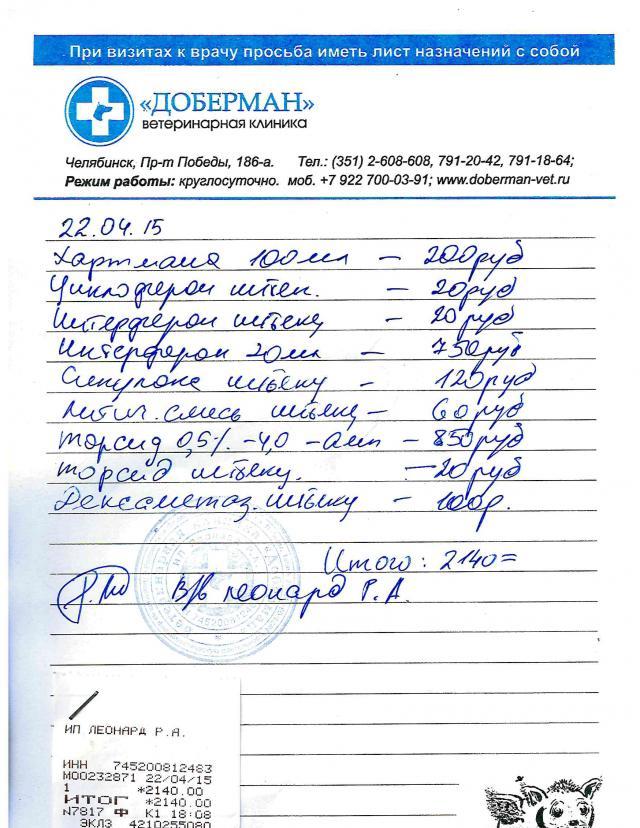 При визитах к врачу просьба иметь лист назначений с собой
«ДОБЕРМАН»
ветеринарная клиника
Челябинск, Пр-т Победы, 186-а. Тел.: (351) 2-608-608, 791-20-42, 791-18-64;
Режим работы: круглосуточно. моб. +7 922 700-03-91; www.doberman-vet.ru
22.04.15
Хартмана 100мл – 200руб
Циклоферон инъек. – 20руб
Интерферон инъекц – 20руб
Интерферон 20мл – 750руб
Синулокс инъекц – 120руб
Литич. смесь инъекц – 60руб
Торсид 0,5% -4,0 -амп – 850руб
Торсид инъекц. – 20руб
Дексаметаз. инъекц – 100р.
Итого: 2140=
В/в Леонард Р.А.
ИП ЛЕОНАРД Р.А.
ИНН 745200812483
М00232871 22/04/15
1 *2140.00
ИТОГ *2140.00
N7817 Ф К1 18:08
ЭКЛЗ 4210255080